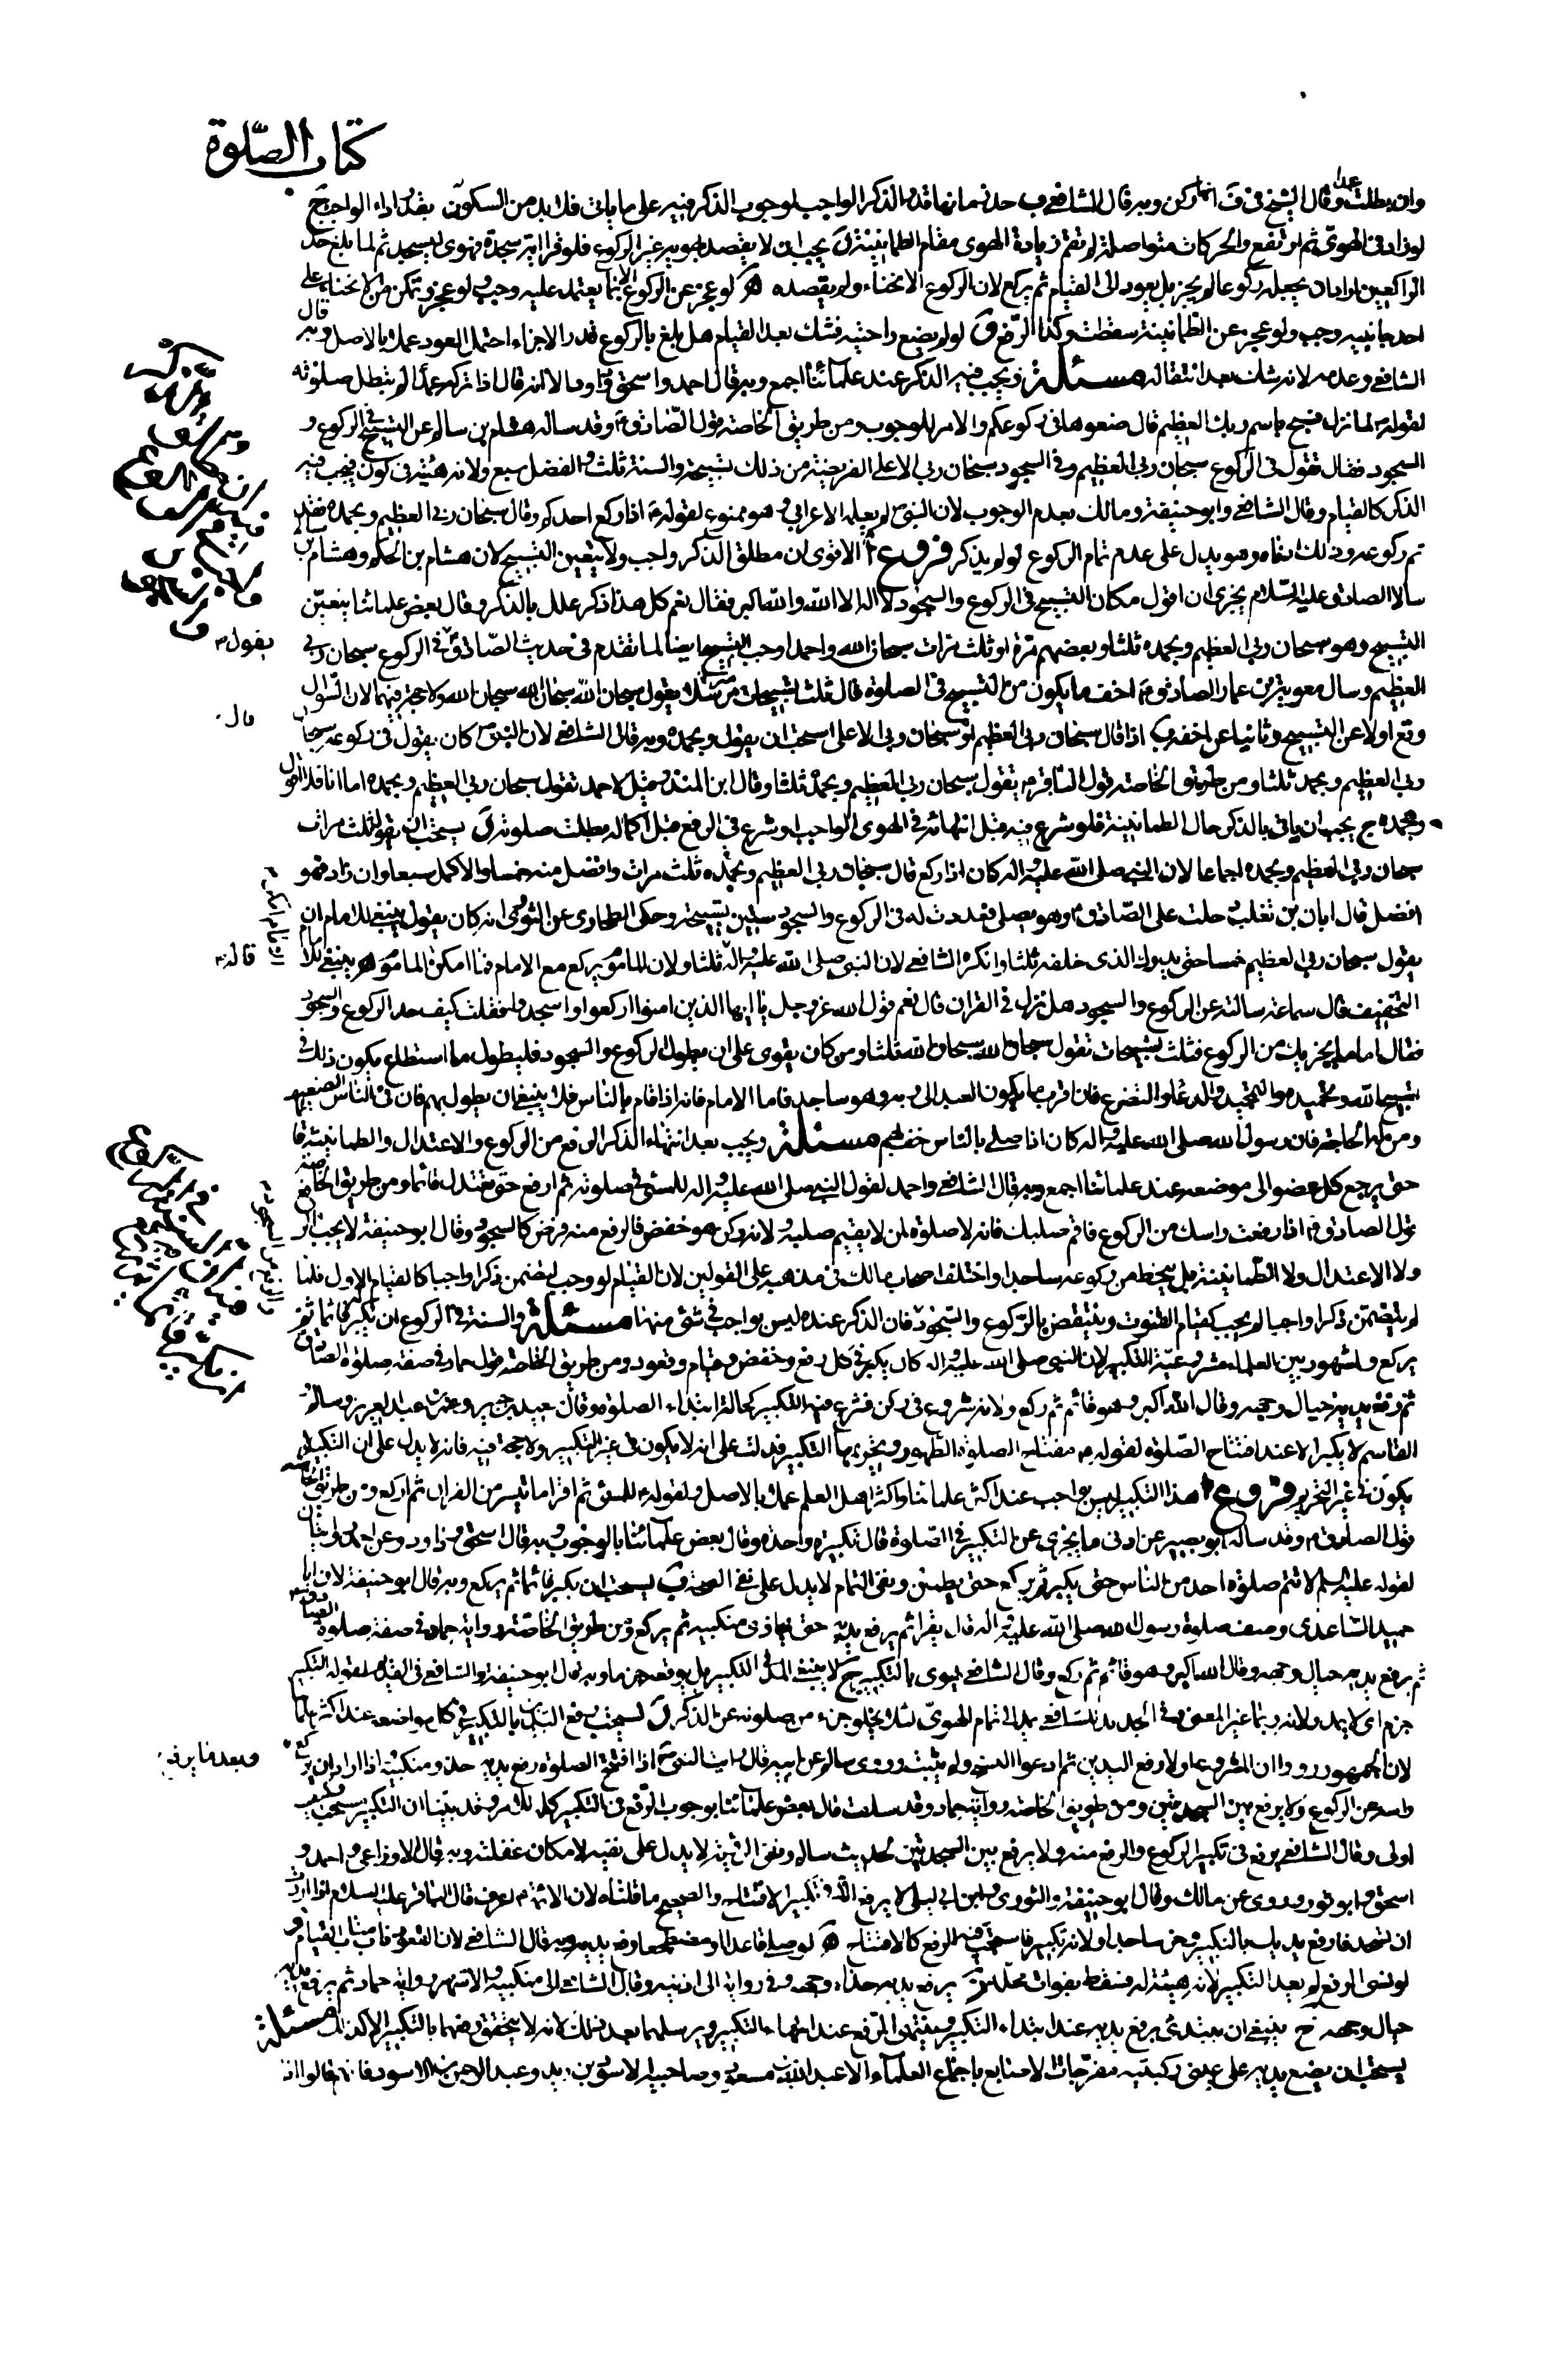 كتاب الصلوة
وان بطلت عمدا وقال الشيخ في ف انها ركن وبه قال الشافعي ب حد زمانها قدر الذكر الواجب لوجوب الذكر فيه على ما ياتي فلا بد من السكون بقدر اداء الواجب ج
لو زاد في الهوي ثم ارتفع والحركات متواصلة لم تقم زيادة الهوي مقام الطمانينة د يجب ان لا يقصد بهويه غير الركوع فلو قرا اية سجدة فهوى ليسجد ثم لما بلغ حد
الراكعين اراد ان يجعله ركوعا لم يجز بل يعود الى القيام ثم يركع لان الركوع الانحناء ولم يقصده ه لو عجز عن الركوع الا بما يعتمد عليه وجب ولو عجز وتمكن من الانحناء على
احد جانبيه وجب ولو عجز عن الطمانينة سقطت وكذا الرفع و لو لم يضع راحتيه فشك بعد القيام هل بلغ بالركوع قدر الاجزاء احتمل العود عملا بالاصل وبه قال
الشافعي وعدمه لانه شك بعد انتقاله مسئلة ويجب فيه الذكر عند علمائنا اجمع وبه قال احمد واسحق وداود الا انه قال اذا تركه عمدا لم تبطل صلوته
لقوله لما نزل فسبح باسم ربك العظيم قال ضعوها في ركوعكم والامر للوجوب ومن طريق الخاصة قول الصادق وقد ساله هشام بن سالم عن التسبيح في الركوع و
السجود فقال تقول في الركوع سبحان ربي العظيم وفي السجود سبحان ربي الاعلى الفريضة من ذلك تسبيحة والسنة ثلث والفضل سبع ولانه هيئة في كون فيجب فيه
الذكر كالقيام وقال الشافعي وابو حنيفة ومالك بعدم الوجوب لان النبي لم يعلمه الاعرابي وهو ممنوع لقوله اذا ركع احدكم وقال سبحان ربي العظيم وبحمده فقد
تم ركوعه وذلك ادناه وهو يدل على عدم تمام الركوع لو لم يذكر فروع ا الاقوى ان مطلق الذكر واجب ولا يتعين التسبيح لان هشام بن الحكم وهشام بن سالم
سالا الصادق عليه السلام يجزي ان اقول مكان التسبيح في الركوع والسجود لا اله الا الله والله اكبر فقال نعم كل هذا ذكر علل بالذكر وقال بعض علمائنا يتعين
التسبيح وهو سبحان ربي العظيم وبحمده ثلثا وبعضهم مرة او ثلث مرات سبحان الله واحمد اوجب التسبيح ايضا لما تقدم في حديث الصادق في الركوع سبحان ربي
العظيم وسال معوية بن عمار الصادق اخف ما يكون من التسبيح في الصلوة قال ثلث تسبيحات مترسلا يقول سبحان الله سبحان الله سبحان الله ولا حجة فيهما لان السؤال
وقع اولا عن التسبيح وثانيا عن اخفه ب اذا قال سبحان ربي العظيم او سبحان ربي الاعلى استحب ان يقول وبحمده وبه قال الشافعي لان النبي كان يقول في ركوعه سبحان
ربي العظيم وبحمده ثلثا ومن طريق الخاصة قول الباقر تقول سبحان ربي العظيم وبحمده ثلثا وقال ابن المنذر وقيل لاحمد تقول سبحان ربي العظيم وبحمده اما انا فلا اقول
وبحمده ج يجب ان ياتي بالذكر حال الطمانينة فلو شرع فيه قبل انتهائه في الهوي الواجب او شرع في الرفع قبل اكماله بطلت صلوته د يستحب ان يقول ثلث مرات
سبحان ربي العظيم وبحمده اجماعا لان النبي صلى الله عليه واله كان اذا ركع قال سبحان ربي العظيم وبحمده ثلث مرات وافضل منه خمسا والاكمل سبعا وان زاد فهو
افضل قال ابان بن تغلب دخلت على الصادق وهو يصلي فعددت له في الركوع والسجود ستين تسبيحة وحكى الطحاوي عن الثوري انه كان يقول ينبغي للامام ان
يقول سبحان ربي العظيم خمسا حتى يدرك الذي خلفه ثلثا وانكره الشافعي لان النبي صلى الله عليه واله قاله ثلثا ولان الماموم يركع مع الامام فما امكنه الماموم ه ينبغي للامام
التخفيف قال سماعة سالته عن الركوع والسجود هل نزل في القران قال نعم قول الله عز وجل يا ايها الذين امنوا اركعوا واسجدوا فقلت كيف حد الركوع والسجود
فقال اما ما يجزيك من الركوع فثلث تسبيحات تقول سبحان الله سبحان الله ثلثا ومن كان يقوى على ان يطول الركوع والسجود فليطول ما استطاع يكون ذلك في
تسبيح الله وتحميده والتمجيد والدعاء والتضرع فان اقرب ما يكون العبد الى ربه وهو ساجد فاما الامام فانه اذا قام بالناس فلا ينبغي ان يطول بهم فان في الناس الضعيف
ومن له الحاجة فان رسول الله صلى الله عليه واله كان اذا صلى بالناس خف بهم مسئلة ويجب بعد انتهاء الذكر الرفع من الركوع والاعتدال والطمانينة قائما
حتى يرجع كل عضو الى موضعه عند علمائنا اجمع وبه قال الشافعي واحمد لقول النبي صلى الله عليه واله للمسئ في صلوته ثم ارفع حتى تعتدل قائما ومن طريق الخاصة
قول الصادق اذا رفعت راسك من الركوع فاقم صلبك فانه لا صلوة لمن لا يقيم صلبه ولانه ركن هو خفض فالرفع منه فرض كالسجود وقال ابو حنيفة لا يجب الرفع
ولا الاعتدال ولا الطمانينة بل ينحط من ركوعه ساجدا واختلف اصحاب مالك في مذهبه على القولين لان القيام لو وجب لتضمن ذكرا واجبا كالقيام الاول فلما
لم يتضمن ذكرا واجبا لم يجب كقيام القنوت وينتقض بالركوع والسجود فان الذكر عنده ليس بواجب في شئ منها مسئلة والسنة في الركوع ان يكبر قائما ثم
يركع والمشهور بين العلماء مشروعية التكبير لان النبي صلى الله عليه واله كان يكبر في كل رفع وخفض وقيام وقعود ومن طريق الخاصة قول حماد في صفة صلوة الصادق
ثم رفع يديه حيال وجهه وقال الله اكبر وهو قائم ثم ركع ولانه شروع في ركن فشرع فيه التكبير كحالة ابتداء الصلوة وقال سعيد بن جبير وعمر بن عبد العزيز وسالم و
القاسم لا يكبر الا عند افتتاح الصلوة لقوله مفتاح الصلوة الطهور وتحريمها التكبير فدلت على انه لا يكون في غير التكبير ولا حجة فيه فانه لا يدل على ان التكبير لا
يكون في غير التحريم فروع ا هذا التكبير ليس بواجب عند اكثر علمائنا واكثر اهل العلم عملا بالاصل ولقوله للمسئ ثم اقرا ما تيسر من القران ثم اركع ومن طريق الخاصة
قول الصادق وقد ساله ابو بصير عن ادنى ما يجزي عن التكبير في الصلوة قال تكبيرة واحدة وقال بعض علمائنا بالوجوب وبه قال اسحق وداود وعن احمد روايتان
لقوله عليه السلم لا تتم صلوة احد من الناس حتى يكبر ثم يركع حتى يطمئن ونفي التمام لا يدل على نفي الصحة ب يستحب ان يكبر قائما ثم يركع وبه قال ابو حنيفة لان ابا
حميد الساعدي وصف صلوة رسول الله صلى الله عليه واله قال يقرا ثم يرفع يديه حتى يحاذي منكبيه ثم يركع ومن طريق الخاصة رواية حماد في صفة صلوة الصادق
ثم يرفع يديه حيال وجهه وقال الله اكبر وهو قائم ثم ركع وقال الشافعي يهوي بالتكبير ج لا ينبغي المد في التكبير بل يوقعه جزما وبه قال ابو حنيفة والشافعي في القديم لقوله التكبير
جزم اي لا يمد ولانه ربما غير المعنى وفي الجديد للشافعي يمد الى تمام الهوي لئلا يخلو جزء من صلوته عن الذكر د يستحب رفع اليدين بالتكبير في كل مواضعه عند اكثر علمائنا
لان الجمهور رووا ان المشروع اولا رفع اليدين ثم ادعوا النسخ ولم يثبت وروى سالم عن ابيه قال رايت النبي اذا افتتح الصلوة رفع يديه حذو منكبيه اذا اراد ان يركع وبعد ما يرفع
راسه من الركوع ولا يرفع بين السجدتين ومن طريق الخاصة رواية حماد وقد سلفت قال بعض علمائنا بوجوب الرفع في التكبير كله للامر وقد بينا ان التكبير مستحب فكيفيته
اولى وقال الشافعي يرفع في تكبير الركوع والرفع منه ولا يرفع بين السجدتين لحديث سالم ونفي الرؤية لا يدل على نفيه لامكان غفلته وبه قال الاوزاعي واحمد و
اسحق وابو ثور وروي عن مالك وقال ابو حنيفة والثوري وابن ابي ليلى لا يرفع الا في تكبير الافتتاح والصحيح ما قلناه لان الائمة اعرف قال الباقر عليه السلام اذا اردت
ان تسجد فارفع يديك بالتكبير وخر ساجدا ولانه تكبير فاستحب فيه الرفع كالافتتاح ه لو صلى قاعدا او مضطجعا رفع يديه وبه قال الشافعي لان القعود ناب مناب القيام و
لو نسي الرفع لم يعد التكبير لانه هيئة له فسقط بفوات محله ز يرفع يديه حذاء وجهه وفي رواية الى اذنيه وقال الشافعي الى منكبيه والاشهر رواية حماد ثم يرفع يديه
حيال وجهه ح ينبغي ان يبتدئ برفع يديه عند ابتداء التكبير وينتهي الرفع عند انتهاء التكبير ويرسلهما بعد ذلك لانه لا يتحقق رفعهما بالتكبير الا كذلك مسئلة
يستحب ان يضع يديه على عيني ركبتيه مفرجات الاصابع باجماع العلماء الا عبد الله بن مسعود وصاحبيه الاسود بن يزيد وعبد الرحمن بن الاسود فانهم قالوا اذا